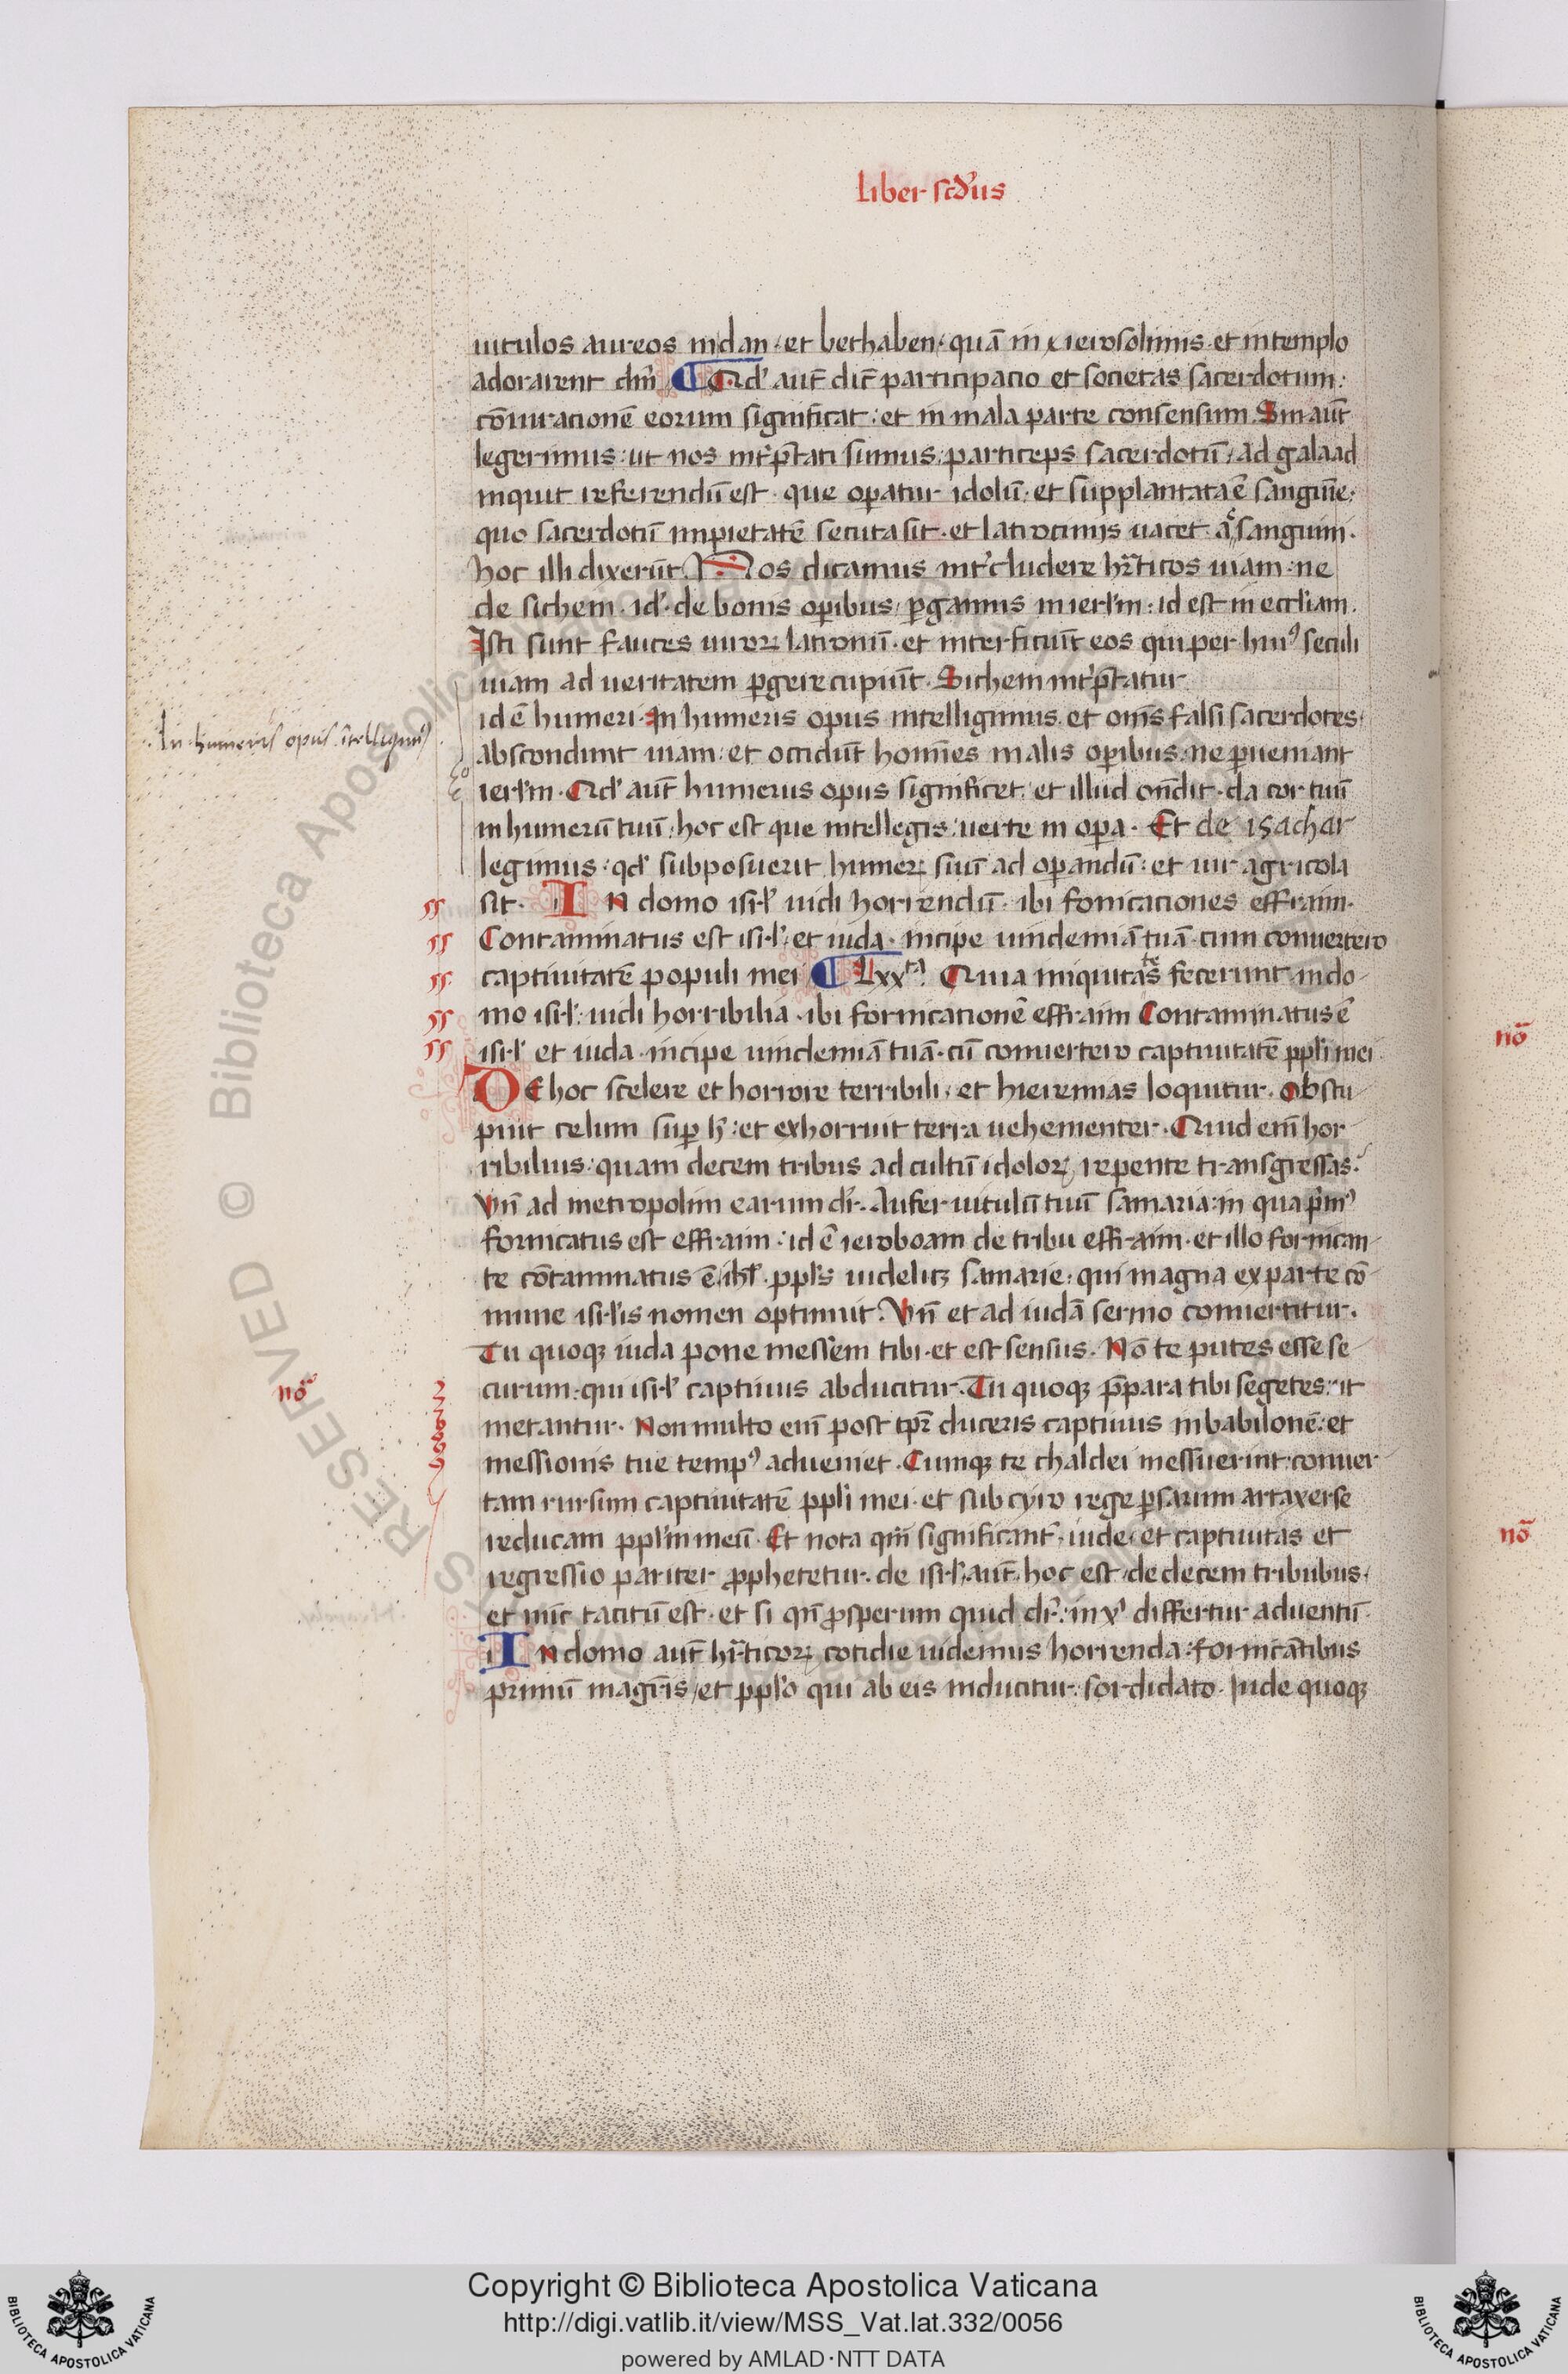 liber scđus
uitulos aureos in dan · et bethaben · quā in ierosolimis · et in templo
adorarent dm̄ Qd' aut̄ dic̄t participacio et societas sacerdotum :
cōiuracionē eorum significat : et in mala parte consensum . Sin aut̄
legerimus : ut nos int'p̄tati sumus : particeps sacerdotū , ad galaad
inquit referendū est · que op̱atur idolū · et supplantata ē sanguīe :
quo sacerdotū impietatē secuta sit · et latrociniis uacet a sanguini ·
hoc illi dixerūt . Nos dicamus int'cludere hr̄ticos uiam : ne
de sichem . id' . de bonis op̱ibus , p̱gamus in ierl'm : id est in eccl'iam .
Isti sunt fauces uiroꝝ latronū · et interficiūt eos qui per huiꝰ seculi
uiam ad ueritatem p̱gere cupiūt . Sichem int'p̄tatur
id ē humeri · In humeris opus intelligimus · et om̄s falsi sacerdotes ·
In humeris opus ītelligimus
abscondunt uiam : et occidūt homīes malis op̱ibus · ne p̱ueniant
ierl'm · Qd' aut̄ humerus opus significet : et illud on̄dit · da cor tuū
in humerū tuū : hoc est que intellegis : uerte in op̱a · Et de isachar
legimus : qd' subposuerit humeꝝ suū ad op̱andū : et uir agricola
sit · In domo isr̄l' uidi horrendū · ibi fornicationes effraim ·
Contaminatus est isr̄l' · et iuda · incipe uindemiā tuā · cum conuertero
captiuitatē populi mei Lxx^ta Quia iniquitates fecerunt in do
mo isr̄l' : uidi horribilia · ibi fornicationē effraim Contaminatus ē
isr̄l' et iuda · incipe uindemiā tuā · cū conuertero captiuitatē ppl'i mei
nō
De hoc scelere et horrore terribili · et hieremias loquitur · Obstu
puit celum sup̱ h' : et exhorruit terra uehementer · Quid em̄ hor
ribilius : quam decem tribus ad cultū idoloꝝ repente transgressas :
Vn̄ ad metropolim earum dr̄ · Aufer uitulū tuū samaria : in qua p'mꝰ
fornicatus est effraim : id ē ieroboam de tribu effraim · et illo fornican
te cōtaminatus ē ihl' · ppl's uidelicꝫ samarie : qui magna ex parte cō
mune isr̄lis nomen optinuit . Vn̄ et ad iudā sermo conuertitur ·
Tu quoqꝫ iuda pone messem tibi · et est sensus · Nō te putes esse se
nō curum : qui isr̄l' captiuus abducitur . Tu quoqꝫ p̄para tibi segetes : ut
metantur · Non multo em̄ post tp̄r duceris captiuus in babilonē : et
messionis tue tempꝰ adueniet · Cumqꝫ te chaldei messuerint : conuer
tam rursum captiuitatē ppl'i mei · et sub cyro rege p̱sarum artaxerse
reducam ppl'm meū · Et nota qm̄ significant' · iude · et captiuitas et
nō
regressio pariter p̱phetetur · de isr̄l' · aut̄ hoc est de decem tribubus ·
et nūc tacitū est · et si qn̄ ꝓsperum quid dr̄ : in x' differtur aduentū ·
In domo aut̄ hr̄ticoꝝ cotidie uidemus horrenda : fornicātibus
primū magr̄is , et ppl'o qui ab eis inducitur : sordidato · Iude quoqꝫ
© Biblioteca Apostolica
RESERVED
Copyright © Biblioteca Apostolica Vaticana
http://digi.vatlib.it/view/MSS_Vat.lat.332/0056
powered by AMLAD·NTT DATA
BIBLIOTECA APOSTOLICA VATICANA
BIBLIOTECA APOSTOLICA VATICANA